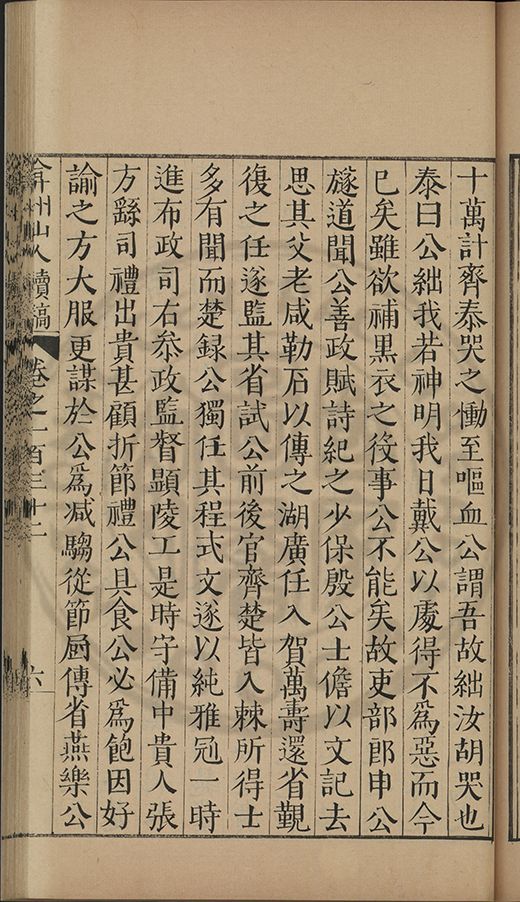 十萬計齊泰哭之慟至嘔血公謂吾故絀汝胡哭也
泰曰公絀我若神明我日戴公以處得不爲惡而今
已矣雖欲補黑衣之役事公不能矣故吏部郎申公
旞道聞公善政賦詩紀之少保殷公士儋以文記去
思其父老咸勒石以傳之湖廣任入賀萬壽還省覲
復之任遂監其省試公前後官齊楚皆入棘所得士
多有聞而楚録公獨任其程式文遂以純雅冠一時
進布政司右叅政監督顯陵工是時守備中貴人張
方繇司禮出貴甚顧折節禮公具食公必爲飽因好
諭之方大服更謀於公爲減騶從節厨傳省燕樂公
弇州山人續稿 卷之一百三十二 六